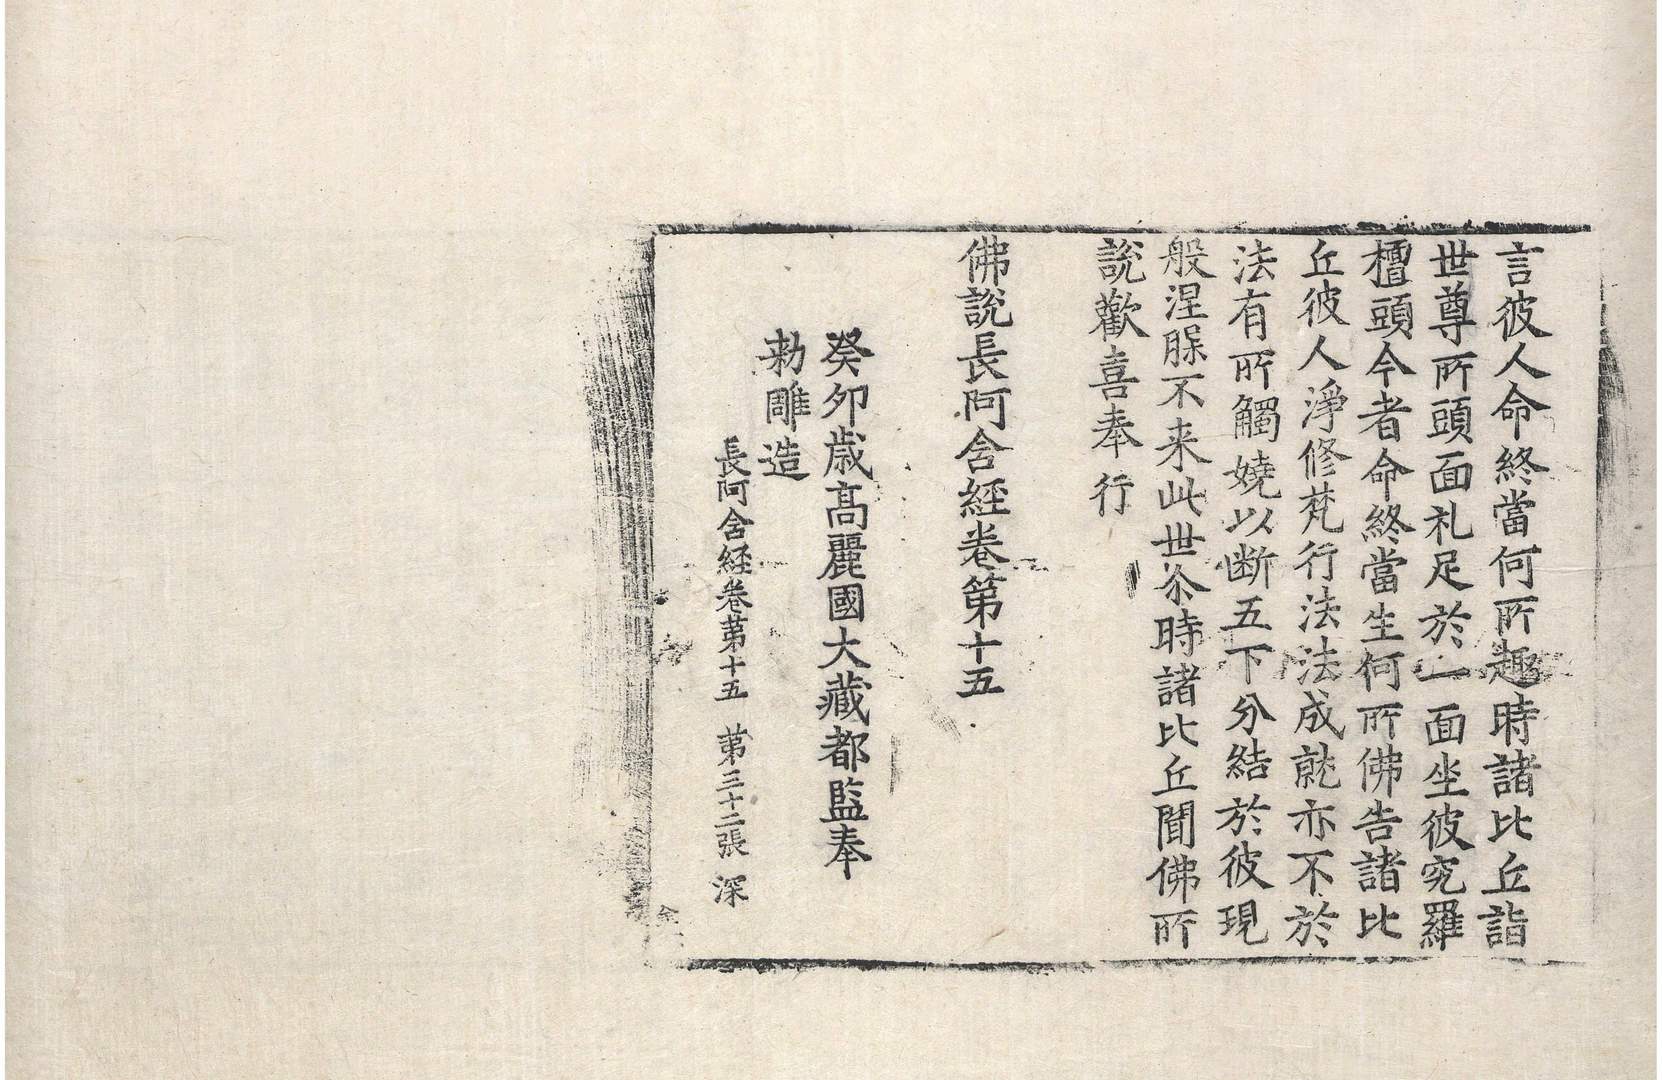 言彼人命終當何所趣時諸比丘詣
世尊所頭面礼足於一面坐彼究羅
檀頭今者命終當生何所佛告諸比
丘彼人淨修梵行法法成就亦不於
法有所觸嬈以断五下分結於彼現
般涅槃不来此世尒時諸比丘聞佛所
說歡喜奉行
佛說長阿含經卷第十五
癸卯歲高麗國大藏都監奉
勅雕造
長阿含経卷苐十五 苐三十二張 深